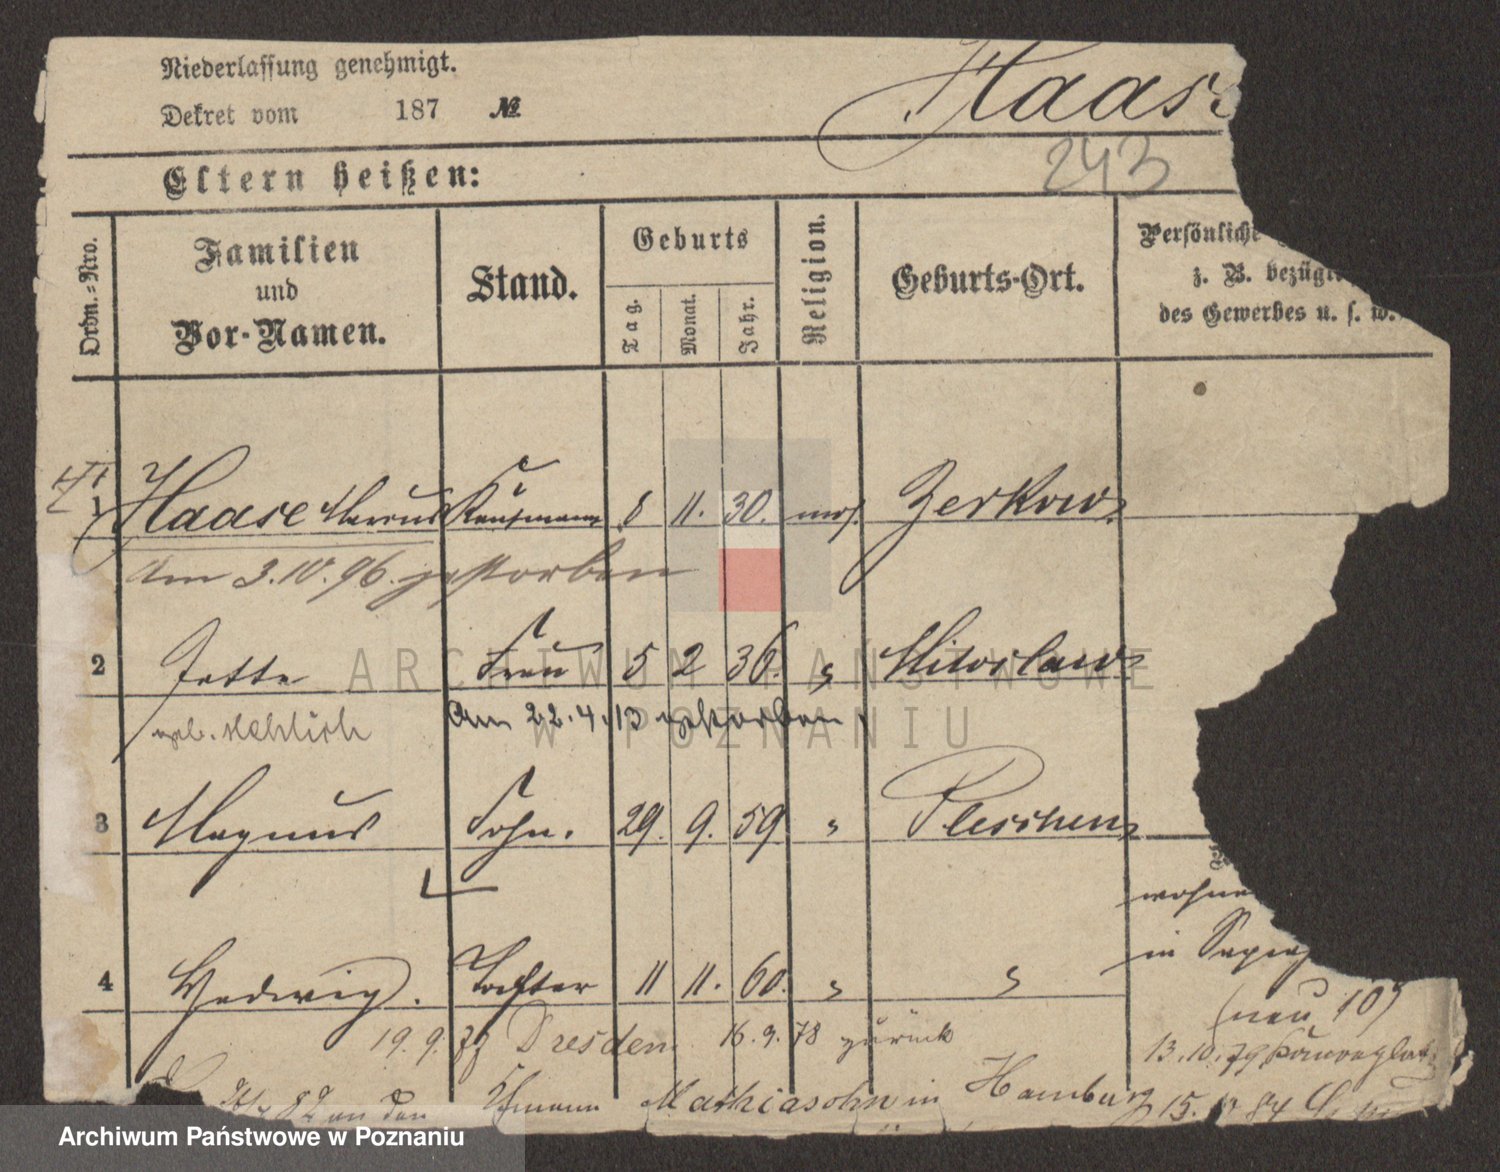 Niederlassung genehmigt.
Dekret vom 187 №
Haase
243
Eltern heißen:
Ordn.-Nro.
Familien und Vor-Namen.
Stand.
Geburts
Tag. Monat. Jahr.
Religion.
Geburts-Ort.
Persönliche
z. B.
des Gewerbes u. s. w.
1 Haase Marcus Kaufmann 8 11. 30. mos. Zerkow
Am 3.IV.96. gestorben
2 Jette Frau 5 2 36. " Miloslaw
geb. Mehlich Am 22.4.13 gestorben
3 Magnus Sohn. 29. 9. 59. " Pleschen
wohn
in
4 Hedwig. Tochter 11 11. 60. " "
(neu 10)
19.9.77 Dresden 16.9.78 zurück
13.10.79
82 an den Kfmann Mathiasohn in Hamburg
15. 84
ARCHIWUM PAŃSTWOWE
W POZNANIU
Archiwum Państwowe w Poznaniu